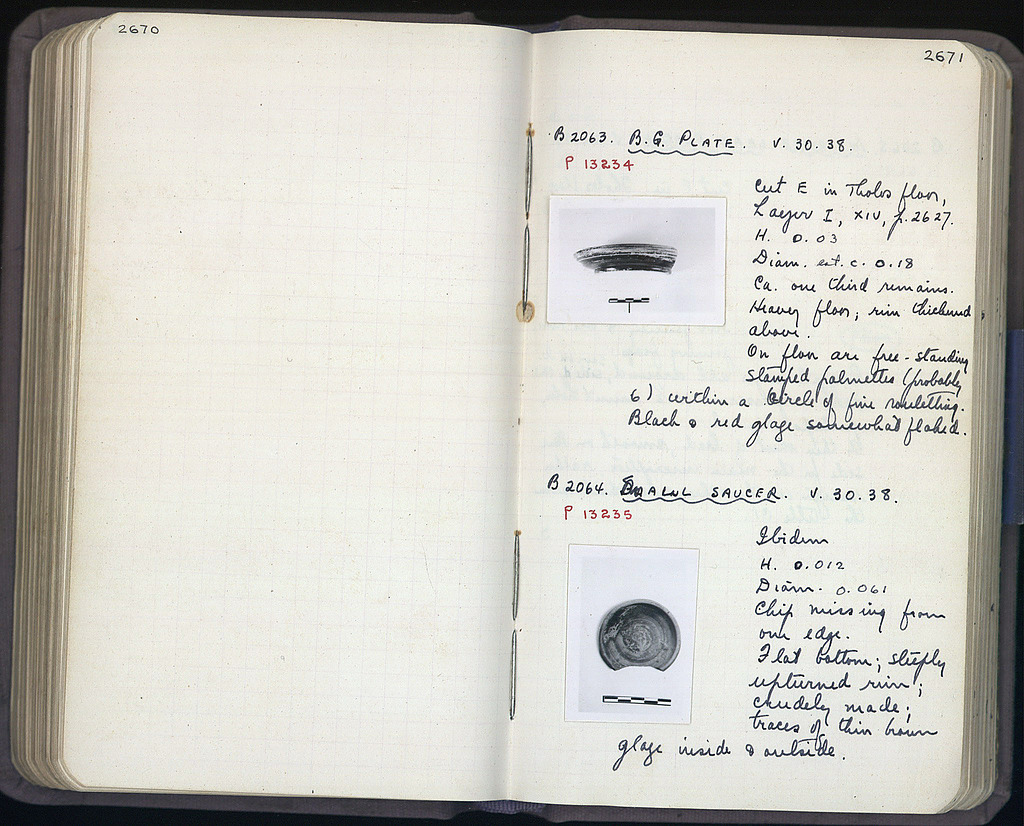 2670
2671
B 2063. B.G. PLATE. V. 30. 38.
P 13234
Cut E in Tholos floor,
Layer I, XIV, p. 2627.
H. 0.03
Diam. est. c. 0.18
Ca. one third remains.
Heavy floor; rim thickened
above.
On floor are free-standing
stamped palmettes (probably
6) within a circle of fine rouletting.
Black & red glaze somewhat flaked.
B 2064. SMALL SAUCER. V. 30. 38.
P 13235
Ibidem
H. 0.012
Diam. 0.061
Chip missing from
one edge.
Flat bottom; steeply
upturned rim;
crudely made;
traces of thin brown
glaze inside & outside.